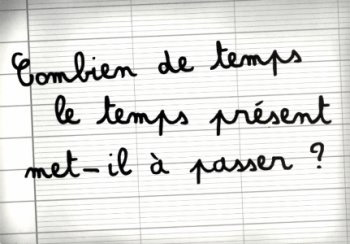 Combien de temps
le temps présent
met-il à passer ?